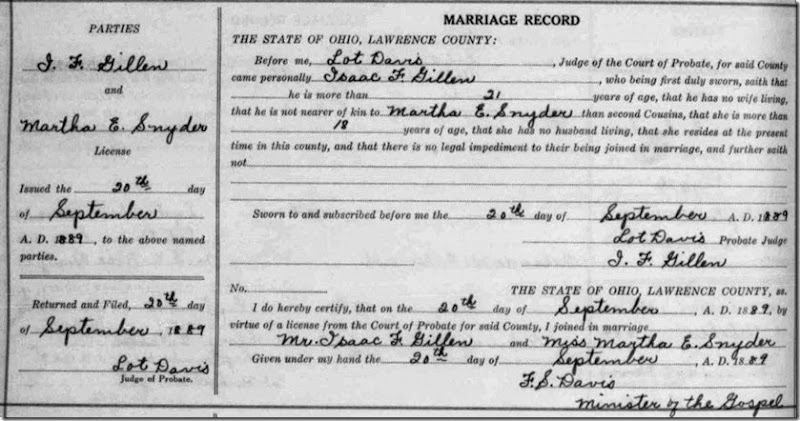 PARTIES
I. F. Gillen
and
Martha E. Snyder
License
Issued the 20th day
of September
A. D. 1889, to the above named
parties.
Returned and Filed, 20th day
of September, 1889
Lot Davis
Judge of Probate.
MARRIAGE RECORD
THE STATE OF OHIO, LAWRENCE COUNTY:
Before me, Lot Davis, Judge of the Court of Probate, for said County
came personally Isaac F. Gillen, who being first duly sworn, saith that
he is more than 21 years of age, that he has no wife living,
that he is not nearer of kin to Martha E. Snyder than second Cousins, that she is more than
18 years of age, that she has no husband living, that she resides at the present
time in this county, and that there is no legal impediment to their being joined in marriage, and further saith
not
Sworn to and subscribed before me the 20th day of September A. D. 1889
Lot Davis Probate Judge
I. F. Gillen
No. THE STATE OF OHIO, LAWRENCE COUNTY, ss.
I do hereby certify, that on the 20th day of September, A. D. 1889, by
virtue of a license from the Court of Probate for said County, I joined in marriage
Mr. Isaac F. Gillen and Miss Martha E. Snyder
Given under my hand the 20th day of September, A. D. 1889
F. S. Davis
Minister of the Gospel